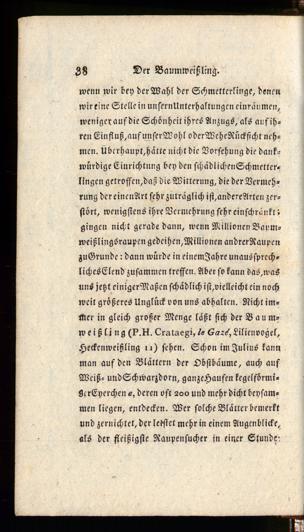 38 Der Baumweißling.
wenn wir bey der Wahl der Schmetterlinge, denen
wir eine Stelle in unsern Unterhaltungen einräumen,
weniger auf die Schönheit ihres Anzugs, als auf ih-
ren Einfluß, auf unser Wohl oder Wehe Rücksicht neh-
men. Überhaupt, hätte nicht die Vorsehung die dank-
würdige Einrichtung bey den schädlichen Schmetter-
lingen getroffen, daß die Witterung, die der Vermeh-
rung der einen Art sehr zuträglich ist, andere Arten zer-
stört, wenigstens ihre Vermehrung sehr einschränkt:
gingen nicht gerade dann, wenn Millionen Baum-
weißlingsraupen gedeihen, Millionen andrer Raupen
zu Grunde: dann würde in einem Jahre unaussprech-
liches Elend zusammen treffen. Aber so kann das, was
uns jetzt einiger Maßen schädlich ist, vielleicht ein noch
weit größeres Unglück von uns abhalten. Nicht im-
mer in gleich großer Menge läßt sich der Baum-
weißling (P. H. Crataegi, le Gazé, Lilienvogel,
Heckenweißling 11) sehen. Schon im Julius kann
man auf den Blättern der Obstbäume, auch auf
Weiß- und Schwarzdorn, ganze Haufen kegelförmi-
ger Eyerchen a, deren oft 200 und mehr dicht beysam-
men liegen, entdecken. Wer solche Blätter bemerkt
und zernichtet, der leistet mehr in einem Augenblicke,
als der fleißigste Raupensucher in einer Stunde: